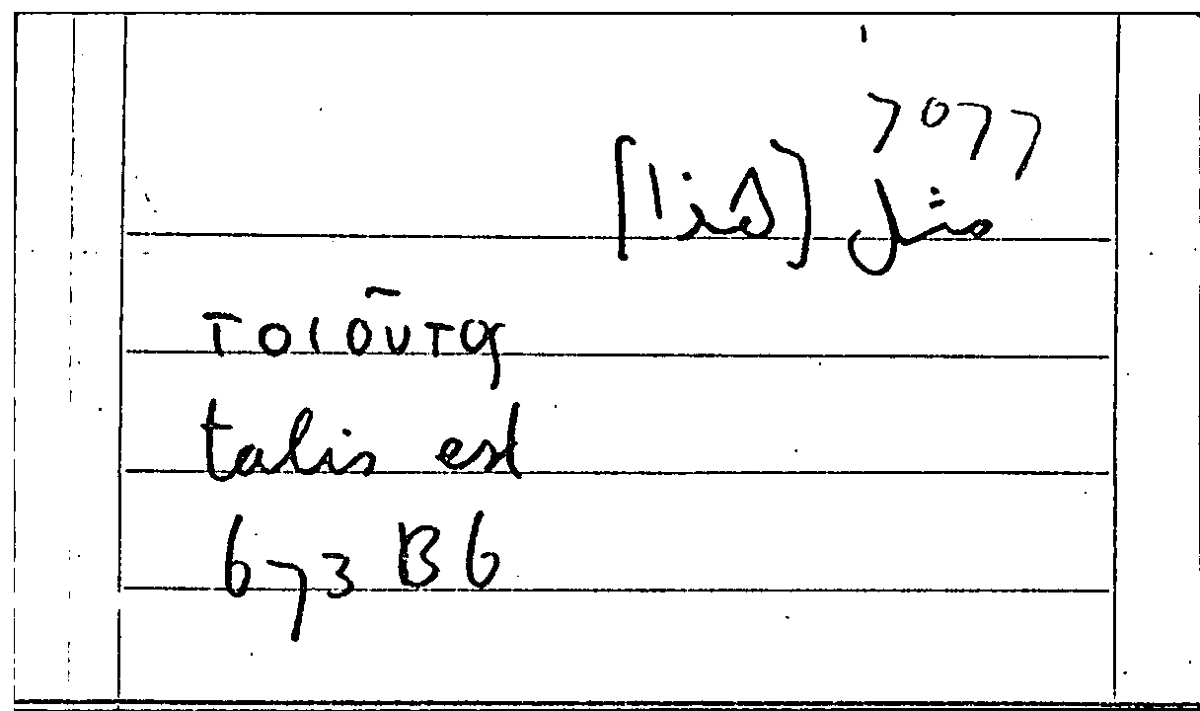 7077
مثل [هذا]
τοιοῦτα
talis est
673 B6